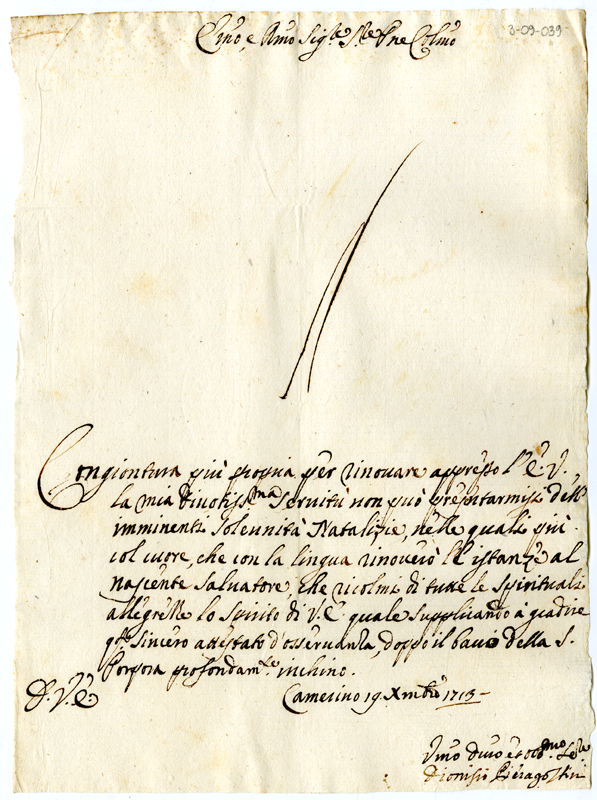 Em̃o, e R̃mo Sig.re S.re P̃ne Col̃mo
3-09-039
Congiontura più propria per rinouare appresso l'E. V.
la mia diuotiss.ma Seruitù non può presentarmisi dell'
imminenti Solennità Natalizie, nelle quali più
col cuore, che con la lingua rinouerò l'istanze al
nascente Saluatore, che ricolmi di tutte le spirituali
allegrezze lo spirito di V. E. quale supplicando à gradire
q.sto sincero attestato d'osseruanza, doppo il bacio della S.
Porpora profondam.te inchino.
D. V. E.
Camerino 19 Xmbre 1713
Vmo Diuo et Obb.mo Se.re
Dionisio Pieragostini